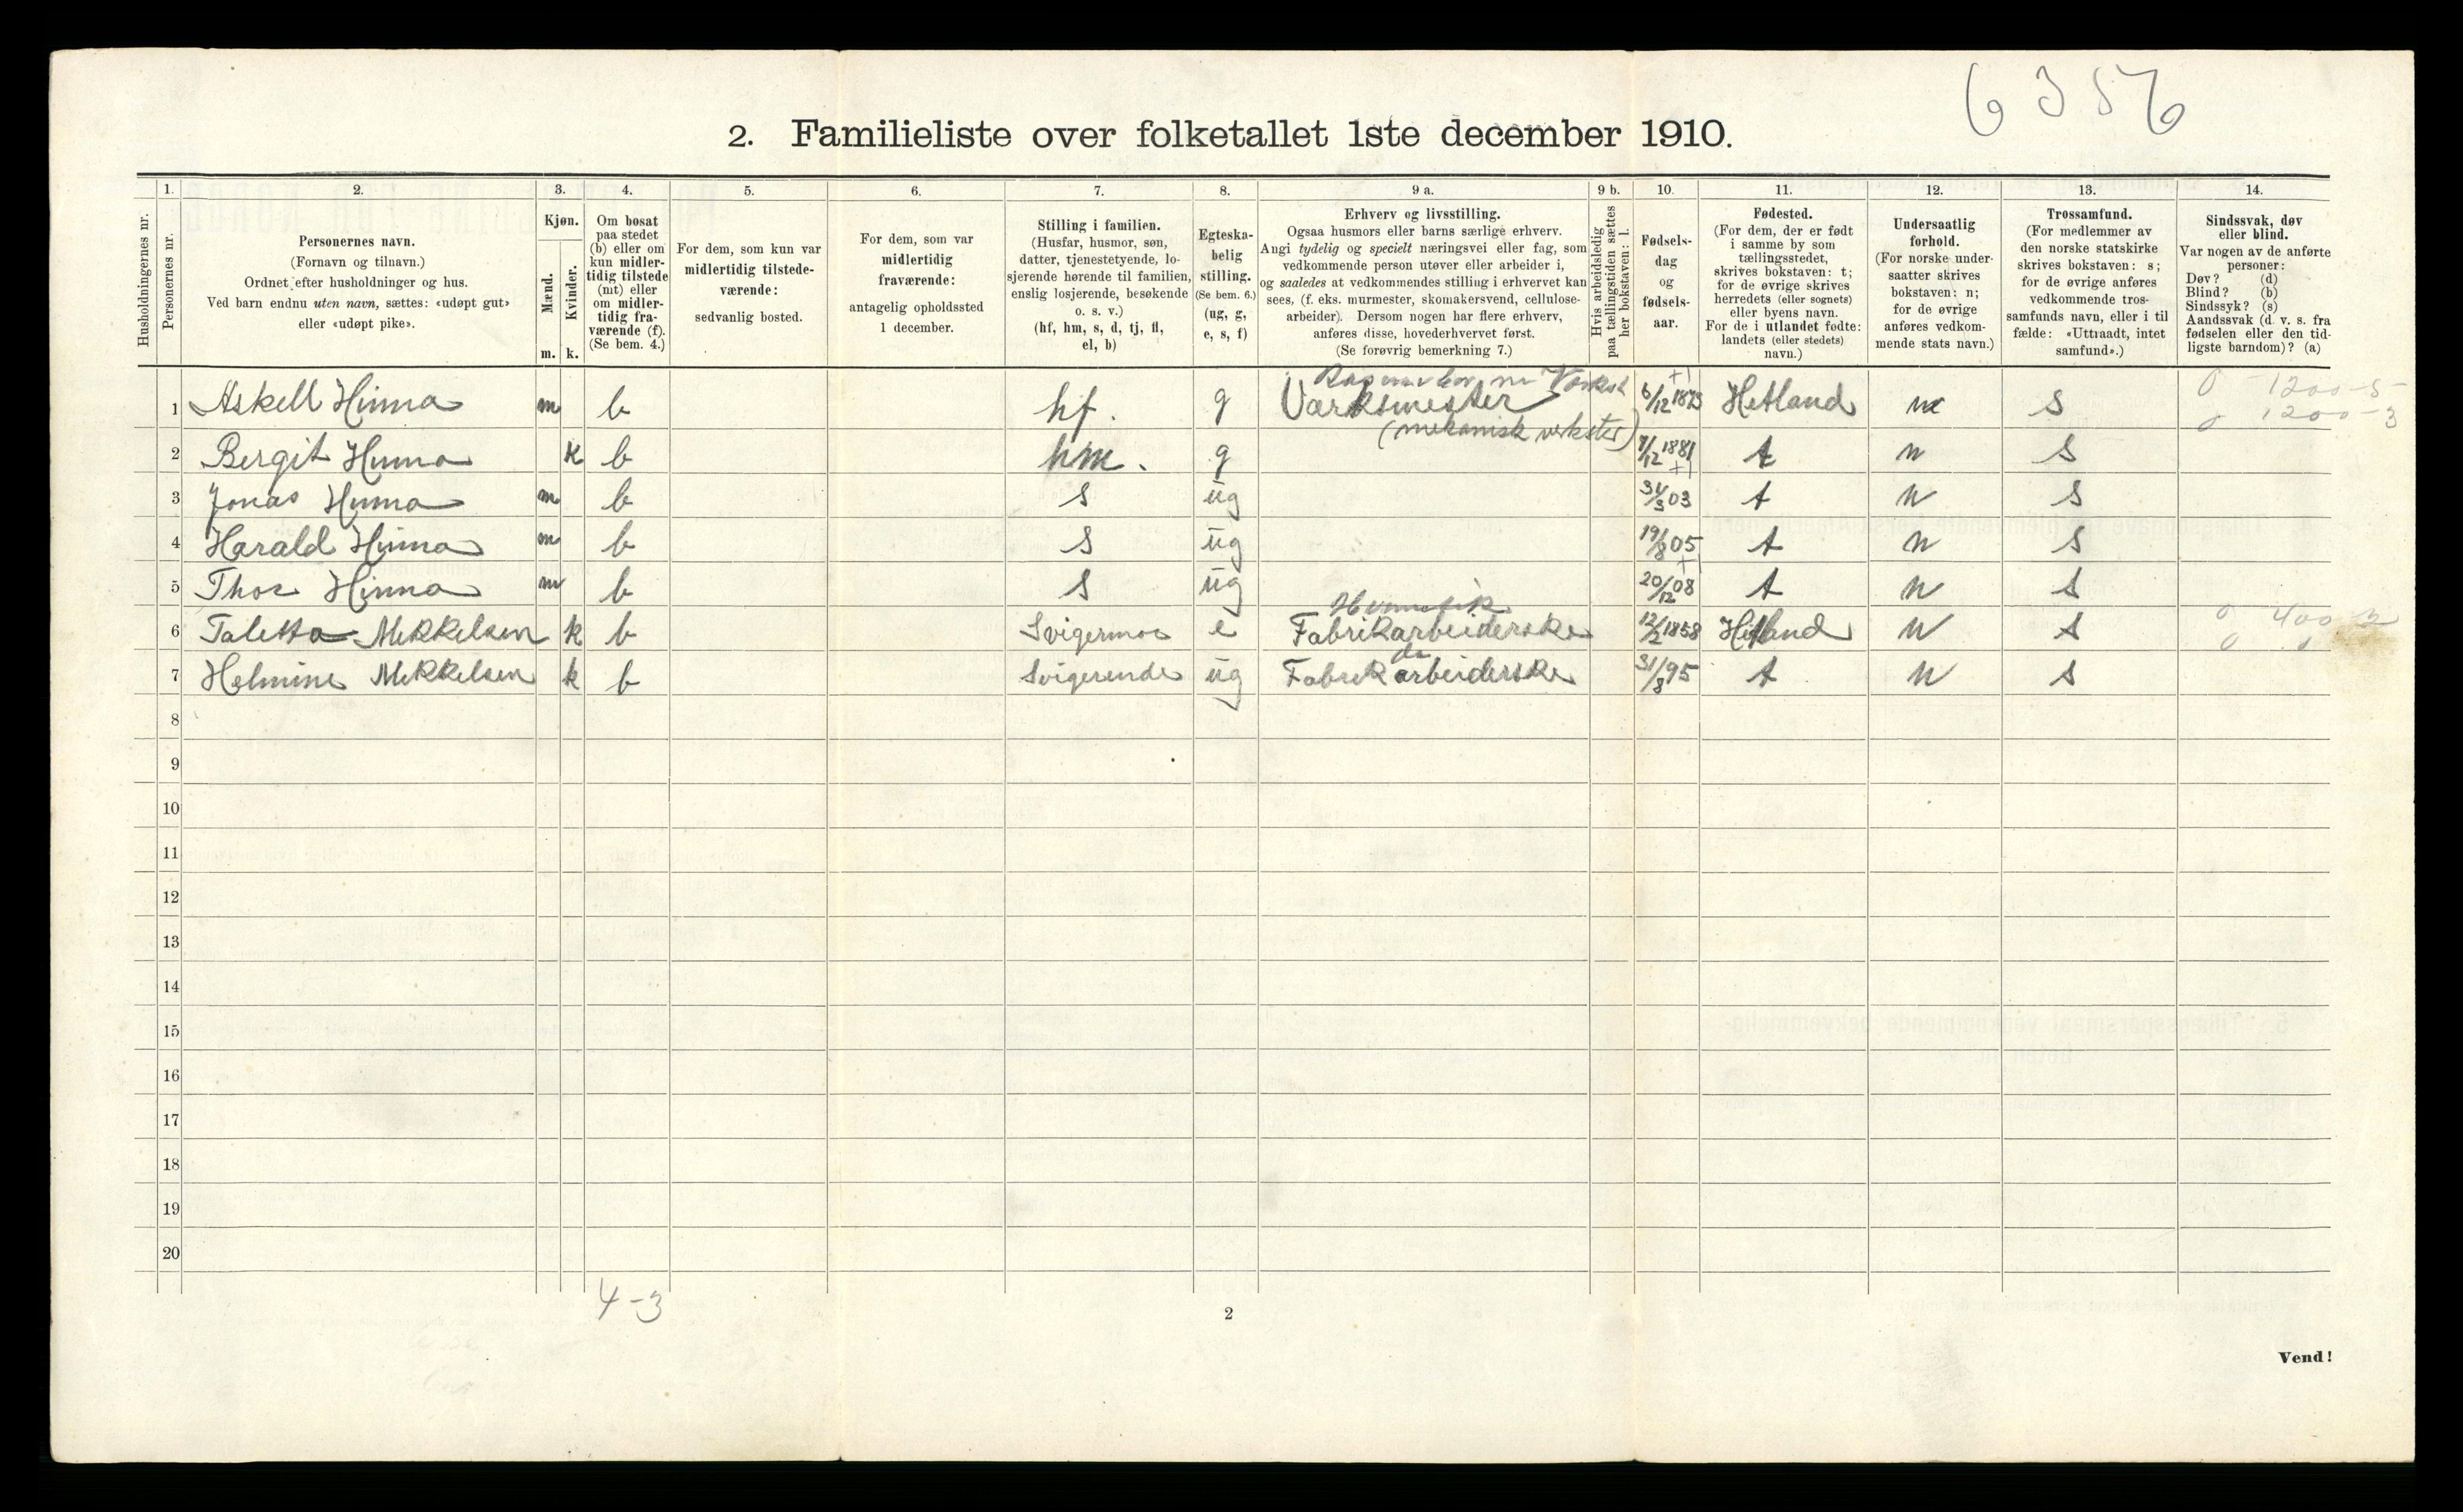 6356
2. Familieliste over folketallet 1ste december 1910.
1. 2. 3. 4. 5. 6. 7. 8. 9 a. 9 b. 10. 11. 12. 13. 14.
Husholdningernes nr.
Personernes nr.
Personernes navn.
(Fornavn og tilnavn.)
Ordnet efter husholdninger og hus.
Ved barn endnu uten navn, sættes: «udøpt gut»
eller «udøpt pike».
Kjøn.
Mænd.
Kvinder.
m. k.
Om bosat
paa stedet
(b) eller om
kun midler-
tidig tilstede
(mt) eller
om midler-
tidig fra-
værende (f).
(Se bem. 4.)
For dem, som kun var
midlertidig tilstede-
værende:
sedvanlig bosted.
For dem, som var
midlertidig
fraværende:
antagelig opholdssted
1 december.
Stilling i familien.
(Husfar, husmor, søn,
datter, tjenestetyende, lo-
sjerende hørende til familien,
enslig losjerende, besøkende
o. s. v.)
(hf, hm, s, d, tj, fl,
el, b)
Egteska-
belig
stilling.
(Se bem. 6.)
(ug, g,
e, s, f)
Erhverv og livsstilling.
Ogsaa husmors eller barns særlige erhverv.
Angi tydelig og specielt næringsvei eller fag, som
vedkommende person utøver eller arbeider i,
og saaledes at vedkommendes stilling i erhvervet kan
sees, (f. eks. murmester, skomakersvend, cellulose-
arbeider). Dersom nogen har flere erhverv,
anføres disse, hovederhvervet først.
(Se forøvrig bemerkning 7.)
Hvis arbeidsledig
paa tællingstiden sættes
her bokstaven: l.
Fødsels-
dag
og
fødsels-
aar.
Fødested.
(For dem, der er født
i samme by som
tællingsstedet,
skrives bokstaven: t;
for de øvrige skrives
herredets (eller sognets)
eller byens navn.
For de i utlandet fødte:
landets (eller stedets)
navn.)
Undersaatlig
forhold.
(For norske under-
saatter skrives
bokstaven: n;
for de øvrige
anføres vedkom-
mende stats navn.)
Trossamfund.
(For medlemmer av
den norske statskirke
skrives bokstaven: s;
for de øvrige anføres
vedkommende tros-
samfunds navn, eller i til
fælde: «Uttraadt, intet
samfund».)
Sindssvak, døv
eller blind.
Var nogen av de anførte
personer:
Døv? (d)
Blind? (b)
Sindssyk? (s)
Aandssvak (d. v. s. fra
fødselen eller den tid-
ligste barndom)? (a)
0 1200-5
1 Askell Hinna m b hf. g Værksmester 6/12 1873 Hetland n s 0 1200-3
(mekanisk verksted)
2 Bergit Hinna k b hm. g 7/12 1881 t n s
3 Jonas Hinna m b s ug 31/3 03 t n s
4 Harald Hinna m b s ug 19/8 05 t n s
5 Thor Hinna m b s ug 20/12 08 t n s
6 Taletta Mekkelsen k b Svigermor e Fabrikarbeiderske 12/2 1858 Hetland n s 0 400-2
7 Helmine Mekkelsen k b ug Fabrikarbeiderske 31/8 95 t n s
8
9
10
11
12
13
14
15
16
17
18
19
20
4-3
2
Vend!